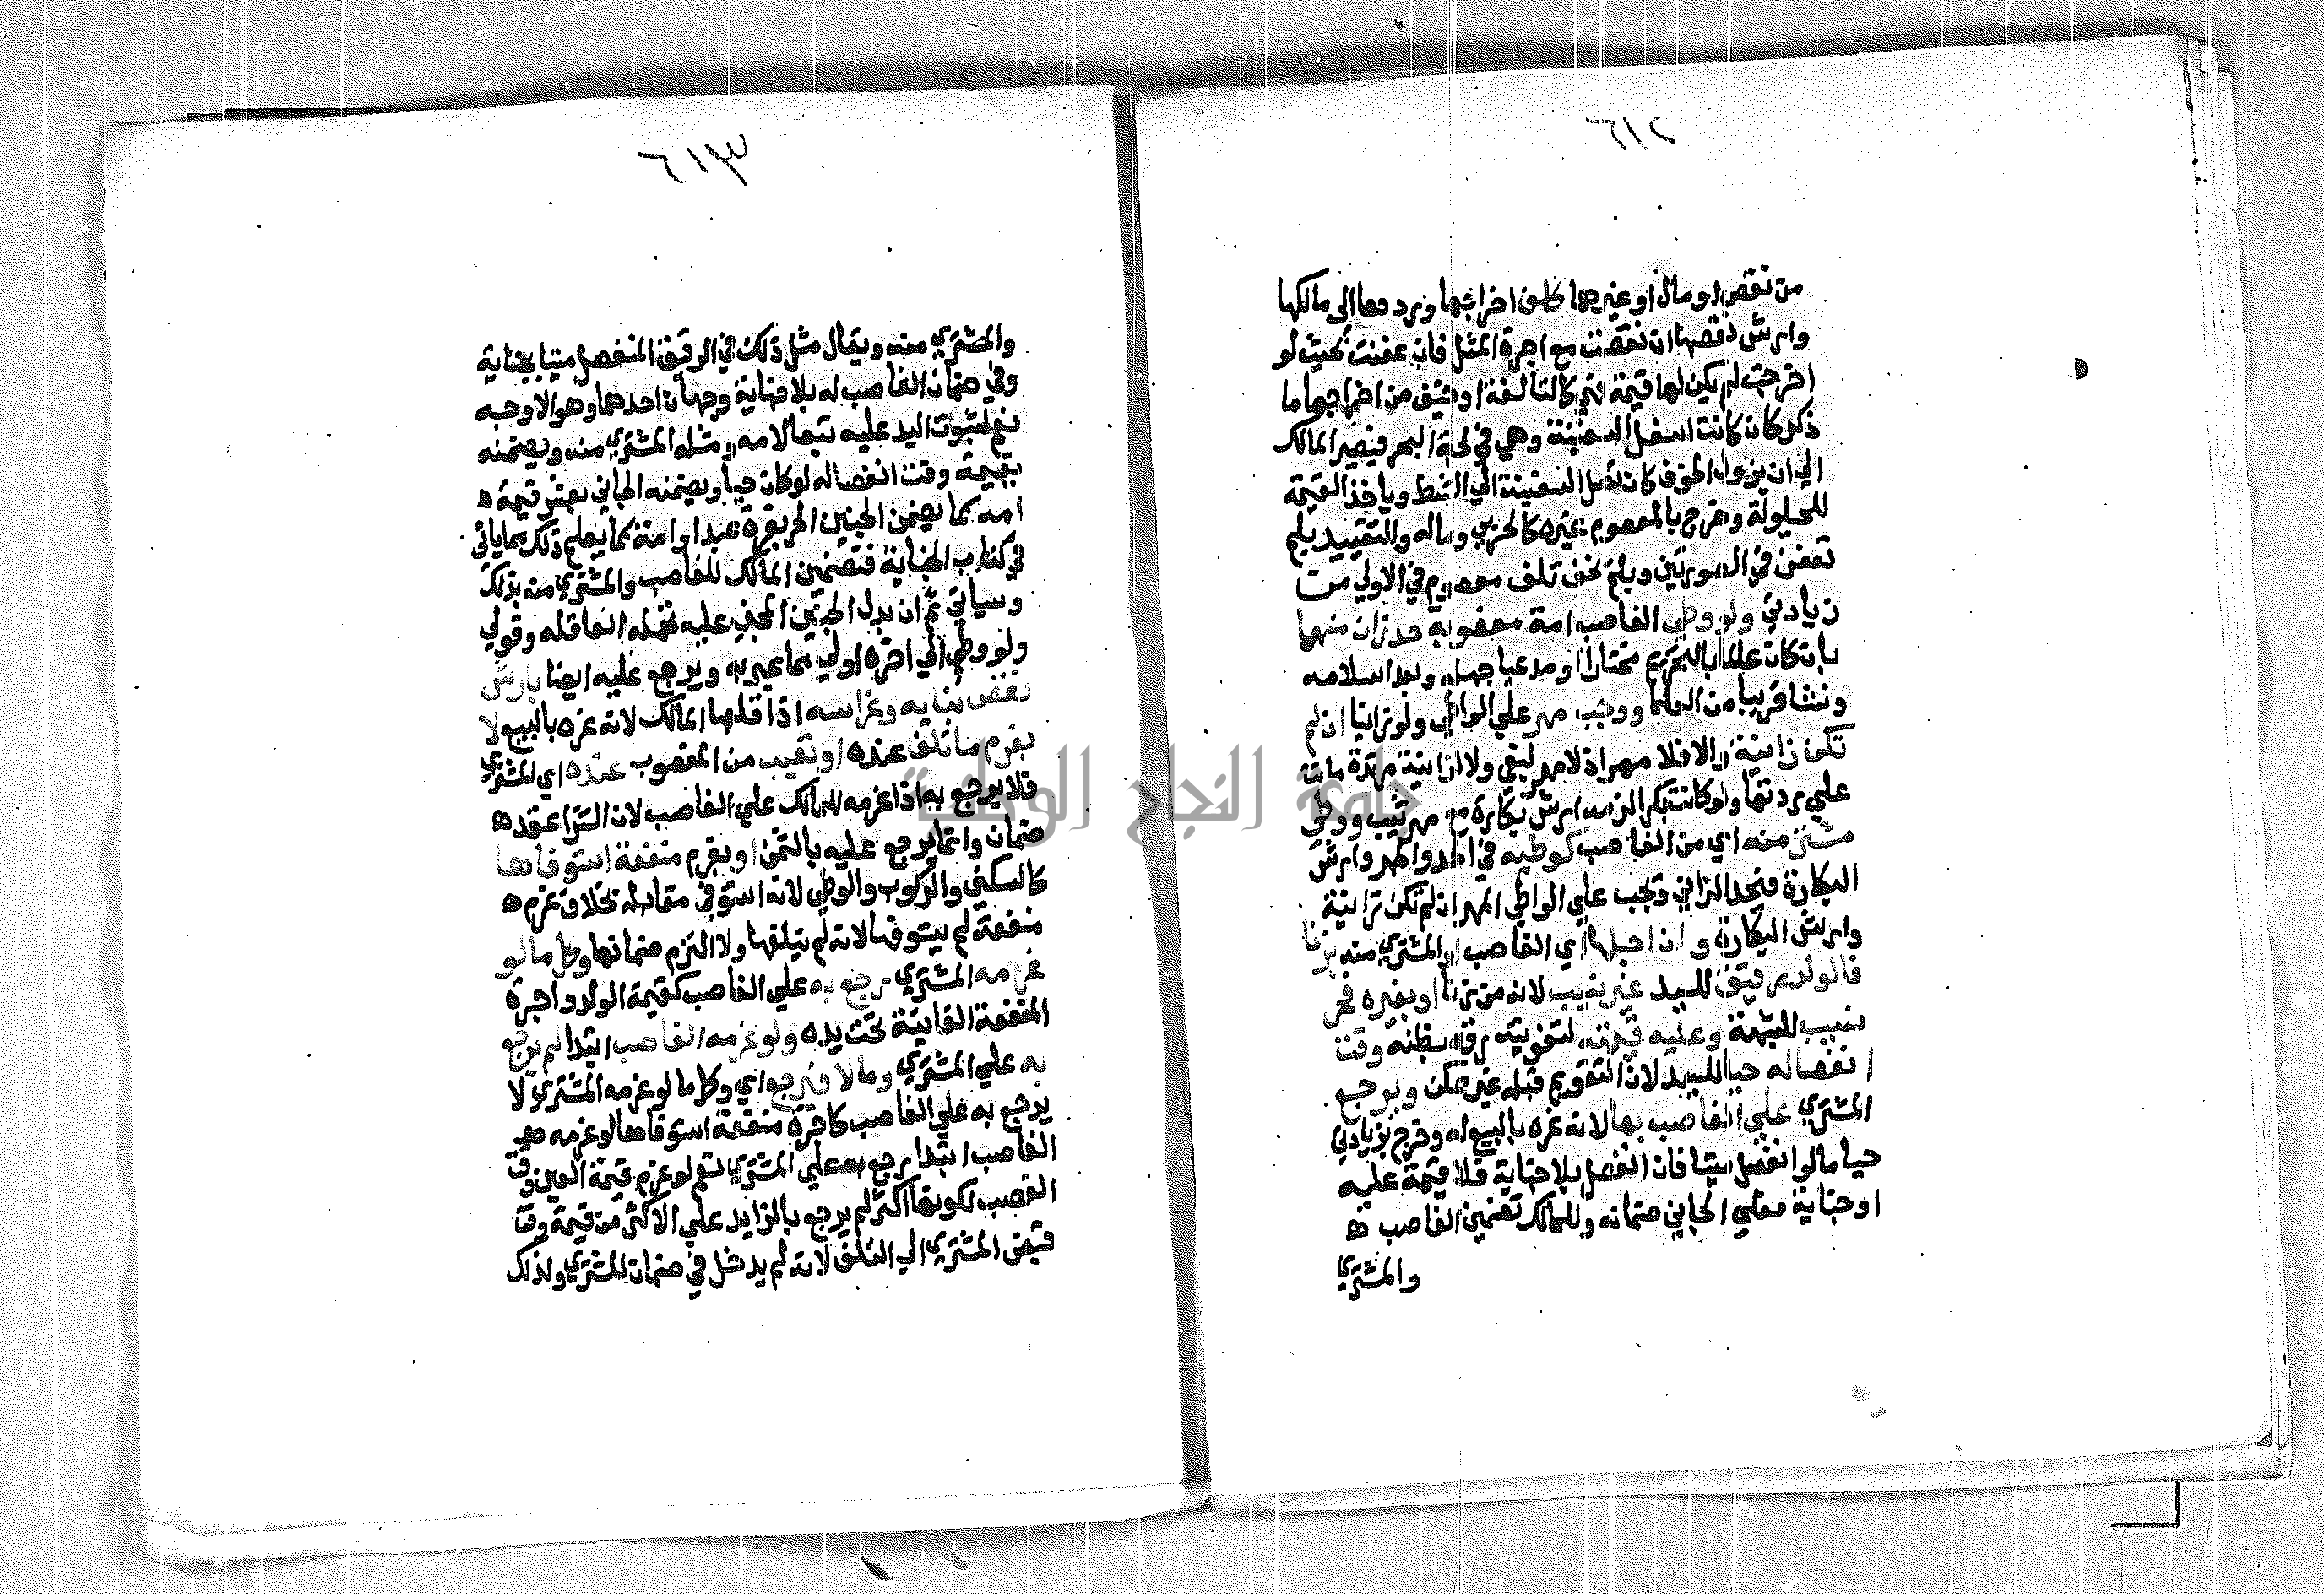 ٦١٢
من نفس او مال او غيرهما كلف اخراجها وردها الى مالكها
وارش نقصها ان نقصت مع اجرة المثل فان عفنت بحيث لو
اخرجت لم يكن لها قيمة فهي كالتالفة او خيف من اخراجها ما
ذكر كان كانت اسفل السفينة وهي في لجة البحر فيصبر المالك
الي ان يزول الخوف كان تصل السفينة الي الشط وياخذ القيمة
للحيلولة وخرج بالمعصوم غيره كالحربي وماله والتقييد بلم
تعفن في الصورتين وبلم يخف تلف معصوم في الاولي من
زيادتي ولو وطي الغاصب امة مغصوبة حد زان منهما
بان كان عالما بالتحريم مختارا او مدعيا جهله وبعد اسلامه
ونشا قريبا من العلما ووجب مهر علي الواطي ولو زانيا ان لم
تكن زانية والا فلا مهر اذ لا مهر لبغي ولا لزانية مرتدة ماتت
علي ردتها ولو كانت بكرا لزمه ارش بكارة مع مهر ثيب ووطي
مشتر منه اي من الغاصب كوطيه في الحد والمهر وارش
البكارة فيحد الزاني وتجب علي الواطي المهر ان لم تكن زانية
وارش البكارة وان احبلها اي الغاصب او المشتري منه بزنا
فالولد رقيق للسيد غير نسيب لانه من زنا او بغيره فحر
نسيب للشبهة وعليه قيمته لتفويته رقه بظنه وقت
انفصاله حيا للسيد لان التقويم قبله غير ممكن ويرجع
المشتري علي الغاصب بها لانه غره بالبيع له وخرج بزيادتي
حيا ما لو انفصل ميتا فان انفصل بلا جناية فلا قيمة عليه
او جناية فعلي الجاني ضمانه وللمالك تضمين الغاصب ه
والمشتري
٦١٣
والمشتري منه ويقال مثل ذلك في الرقيق المنفصل ميتا بجناية
وفي ضمان الغاصب له بلا جناية وجهان احدهما وهو الاوجه
نعم لثبوت اليد عليه تبعا لامه ومثله المشتري منه ويضمنه
بقيمة وقت انفصاله لو كان حيا ويضمنه الجاني بعشر قيمة ه
امه كما يضمن الجنين الحر بغرة عبد او امة كما يعلم ذلك مما ياتي
في كتاب الجناية فتضمين المالك للغاصب والمشتري منه بذلك
وسياتي ثم ان بدل الجنين المجني عليه تحمله العاقله وقولي
ولو وطي الي اخره اولي مما عبر به ويرجع عليه ايضا بارش
نقص بنايه وغراسه اذا قلعها المالك لانه غره بالبيع لا
بغرم ما تلف عنده او تعيب من المغصوب عنده اي المشتري
فلا يرجع به اذا غرمه المالك علي الغاصب لان الشرا عقد ه
ضمان وانما يرجع عليه بالثمن او بغرم منفعة استوفاها
كالسكني والركوب والوطي لانه استوفي مقابله بخلاف غرم ه
منفعة لم يستوفها لانه لم يتلفها ولا التزم ضمانها وكل ما لو
غرمه المشتري رجع به علي الغاصب كقيمة الولد واجرة
المنفعة الفايتة تحت يده ولو غرمه الغاصب ابتدا لم يرجع
به علي المشتري وما لا فيرجع اي وكل ما لو غرمه المشتري لا
يرجع به علي الغاصب كاجرة منفعة استوفاها لو غرمه هو
الغاصب ابتدا رجع به علي المشتري نعم لو غرم قيمة العين وقت
الغصب لكونها اكثر لم يرجع بالزايد علي الاكثر من قيمة وقت
قبض المشتري الي التلف لانه لم يدخل في ضمان المشتري ولذلك
جامعة النجاح الوطنية